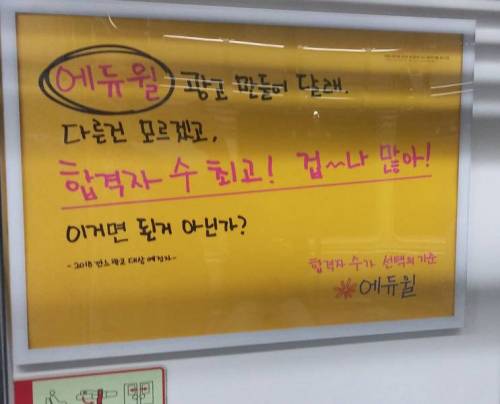 에듀윌 광고 만들어 달래.
다른건 모르겠고,
합격자 수 최고! 겁~나 많아!
이거면 된거 아닌가?
합격자 수가 선택의 기준
에듀윌